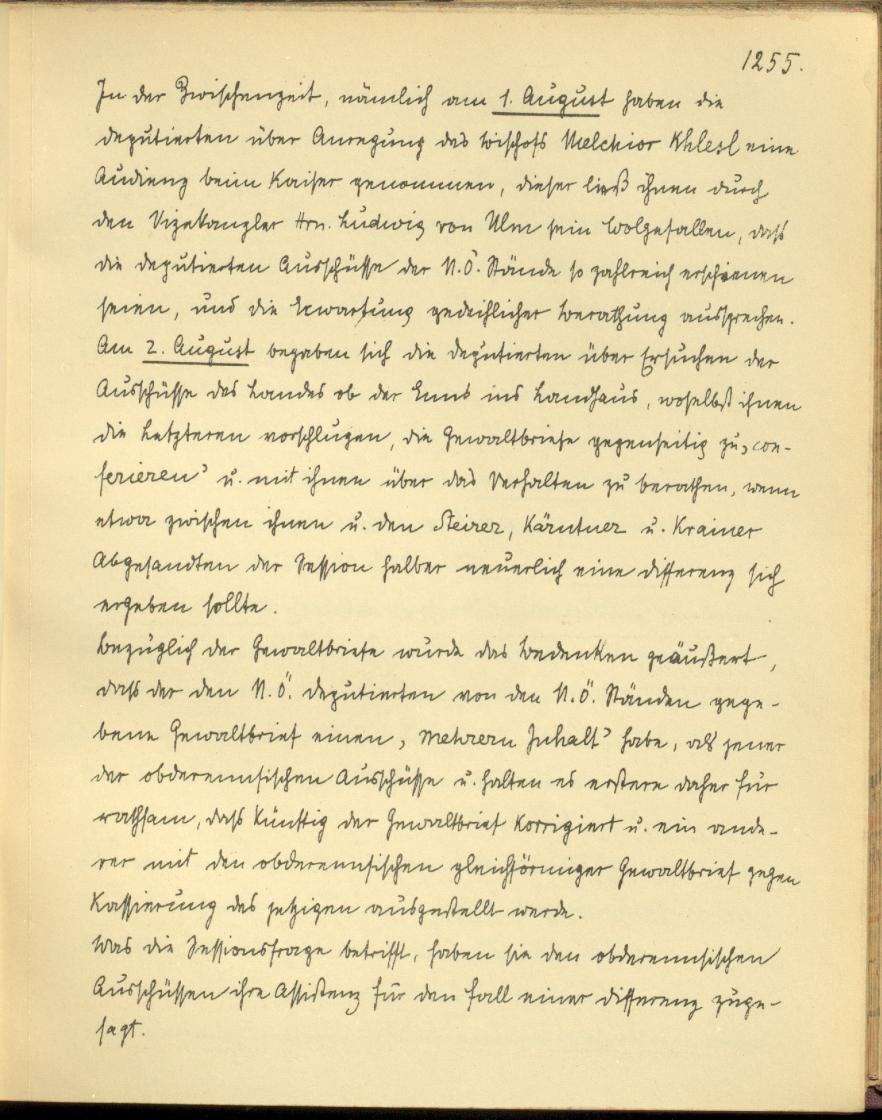 1255.
In der Zwischenzeit, nämlich am 1. August haben die
Deputierten über Anregung des Bischofs Melchior Khlesl eine
Audienz beim Kaiser genommen, dieser ließ ihnen durch
den Vizekanzler Hrn. Ludwig von Ulm sein Wolgefallen, daß
die deputierten Ausschüsse der N.Ö. Stände so zahlreich erschienen
seien, und die Erwartung gedeihlicher Berathung aussprechen.
Am 2. August begaben sich die Deputierten über Ersuchen der
Ausschüsse des Landes ob der Enns ins Landhaus, woselbst ihnen
die Letzteren vorschlugen, die Gewaltbriefe gegenseitig zu ‚con-
ferieren’ u. mit ihnen über das Verhalten zu berathen, wenn
etwa zwischen ihnen u. den Steirer, Kärntner u. Krainer
Abgesandten der Session halber neuerlich eine Differenz sich
ergeben sollte.
Bezüglich der Gewaltbriefe wurde das Bedenken geäußert,
daß der den N.Ö. Deputierten von den N.Ö. Ständen gege-
bene Gewaltbrief einen ‚mehrern Inhalt’ habe, als jener
der obderennsischen Ausschüsse u. halten es erstere daher für
rathsam, daß künftig der Gewaltbrief korrigiert u. ein ande-
rer mit den obderennsischen gleichförmiger Gewaltbrief gegen
Kassierung des jetzigen ausgestellt werde.
Was die Sessionsfrage betrifft, haben sie den obderennsischen
Ausschüssen ihre Assistenz für den Fall einer Differenz zuge-
sagt.